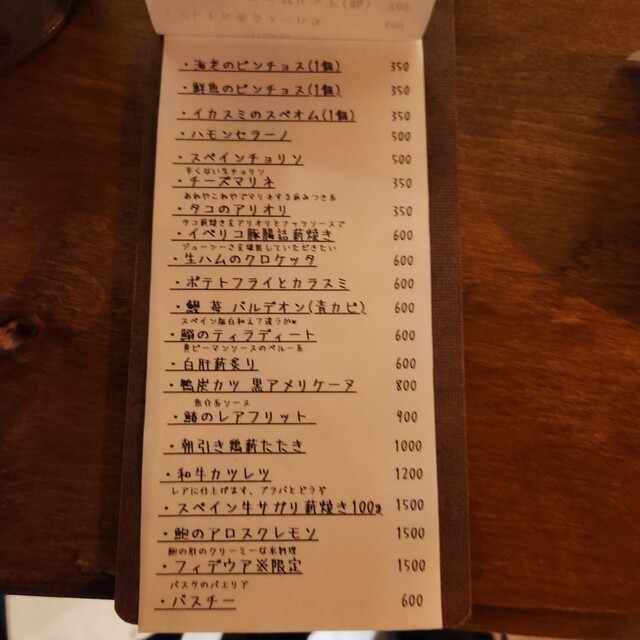 ・海老のピンチョス(1個) 350
・鮮魚のピンチョス(1個) 350
・イカスミのスペオム(1個) 350
・ハモンセラーノ 500
・スペインチョリソ 500
辛くない生チョリソ
・チーズマリネ 350
あれやこれやでマリネする病みつき系
・タコのアリオリ 350
タコ薪焼きをアリオリとナッツソースで
・イベリコ豚腸詰薪焼き 600
ジューシーさを堪能していただきたい
・生ハムのクロケッタ 600
・ポテトフライとカラスミ 600
苺 バルデオン(青カビ) 600
スペイン版白和え？違うかw
・鯔のティラディート 600
ピーマンソースのペルー系
・白肝薪炙り 600
・鴨炭カツ 黒アメリケーヌ 800
魚介系ソース
・鰆のレアフリット 900
・朝引き鶏薪たたき 1000
・和牛カツレツ 1200
レアに仕上げます、ブラバとどうぞ
・スペイン牛サガリ薪焼き100g 1500
・鮑のアロスクレモソ 1500
鮑の肝のクリーミーな米料理
・フィデウア※限定 1500
パスタのパエリア
・バスチー 600